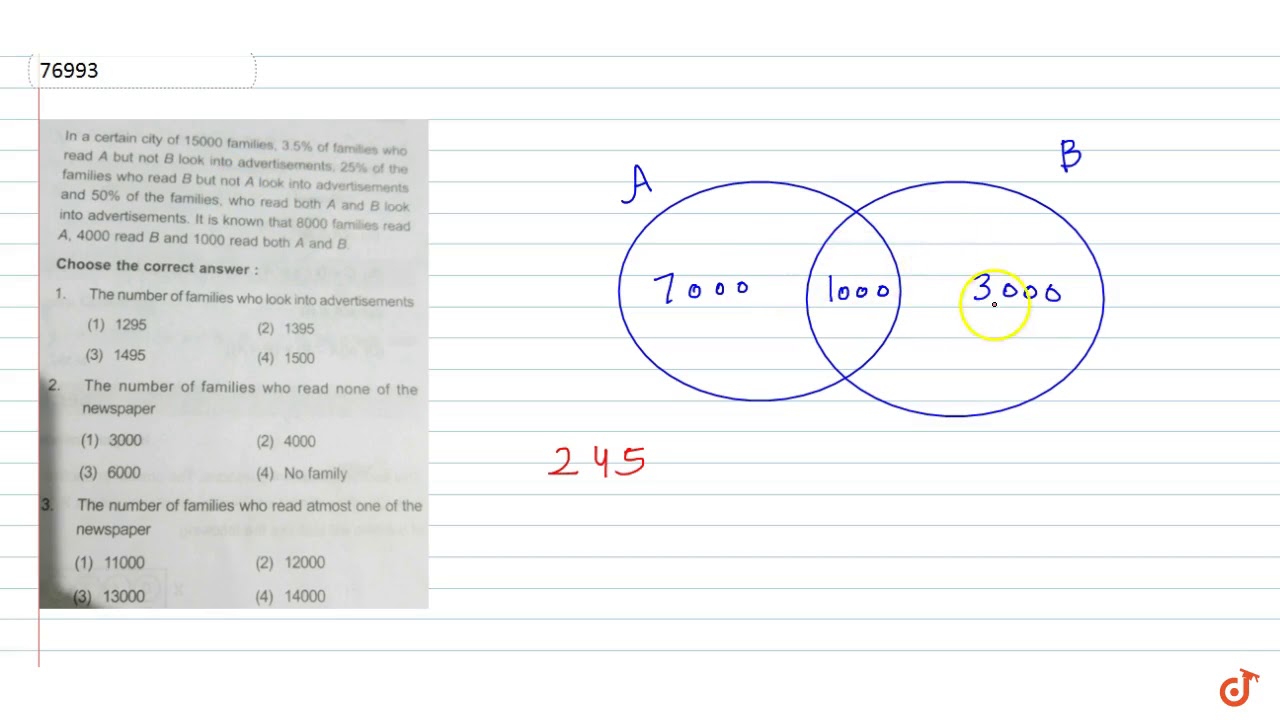 76993
In a certain city of 15000 families, 3.5% of families who
read A but not B look into advertisements, 25% of the
families who read B but not A look into advertisements
and 50% of the families, who read both A and B look
into advertisements. It is known that 8000 families read
A, 4000 read B and 1000 read both A and B.
Choose the correct answer :
1. The number of families who look into advertisements
(1) 1295 (2) 1395
(3) 1495 (4) 1500
2. The number of families who read none of the
newspaper
(1) 3000 (2) 4000
(3) 6000 (4) No family
3. The number of families who read atmost one of the
newspaper
(1) 11000 (2) 12000
(3) 13000 (4) 14000
A
B
7000 1000 3000
245